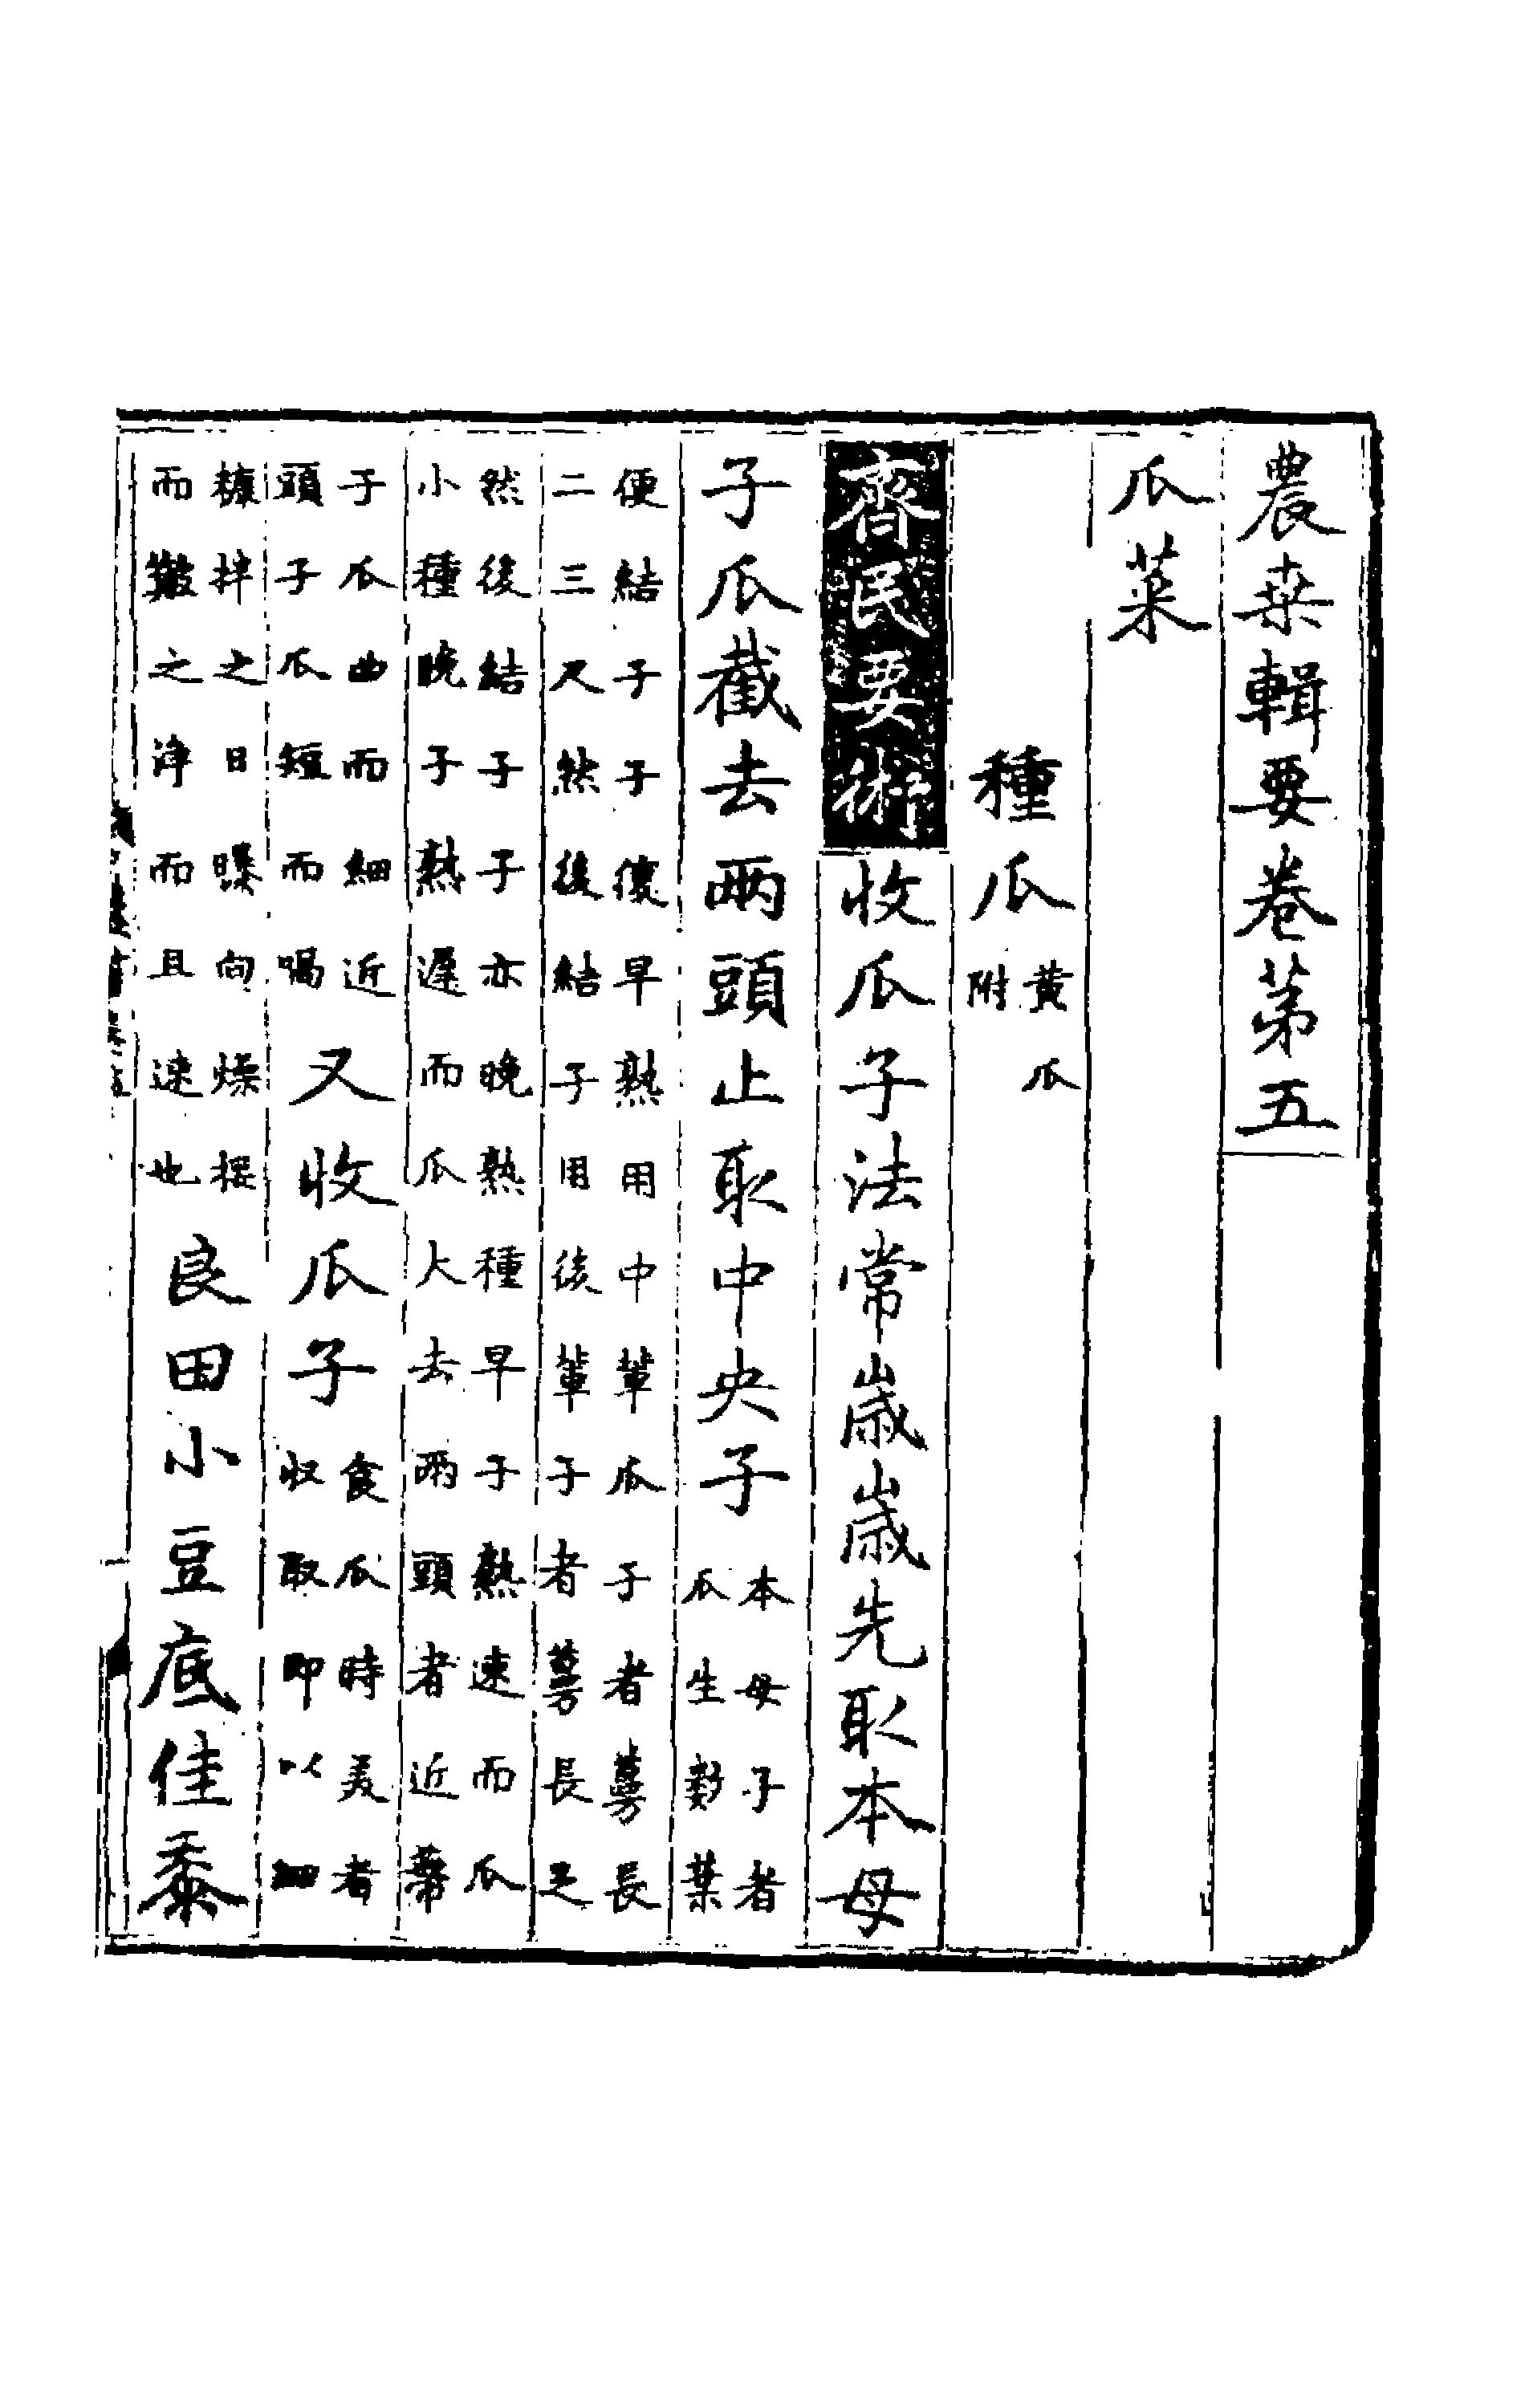 農桒輯要卷苐五
瓜菜
種瓜黃瓜附
齊民要術收瓜子法常歲歲先取本母
子瓜截去兩頭止取中央子本母子者瓜生數葉
便結子子復早熟用中輩瓜子者蔓長二三尺然後結子用後輩子者蔓長足
然後結子子亦晚熟種早子熟速而瓜小種晚子熟遲而瓜大去兩頭者近蒂
子瓜曲而細近頭子瓜短而喎又收瓜子食瓜時美者收取即以細
糠拌之日曝向燥挼而簸之淨而且速也良田小豆底佳黍